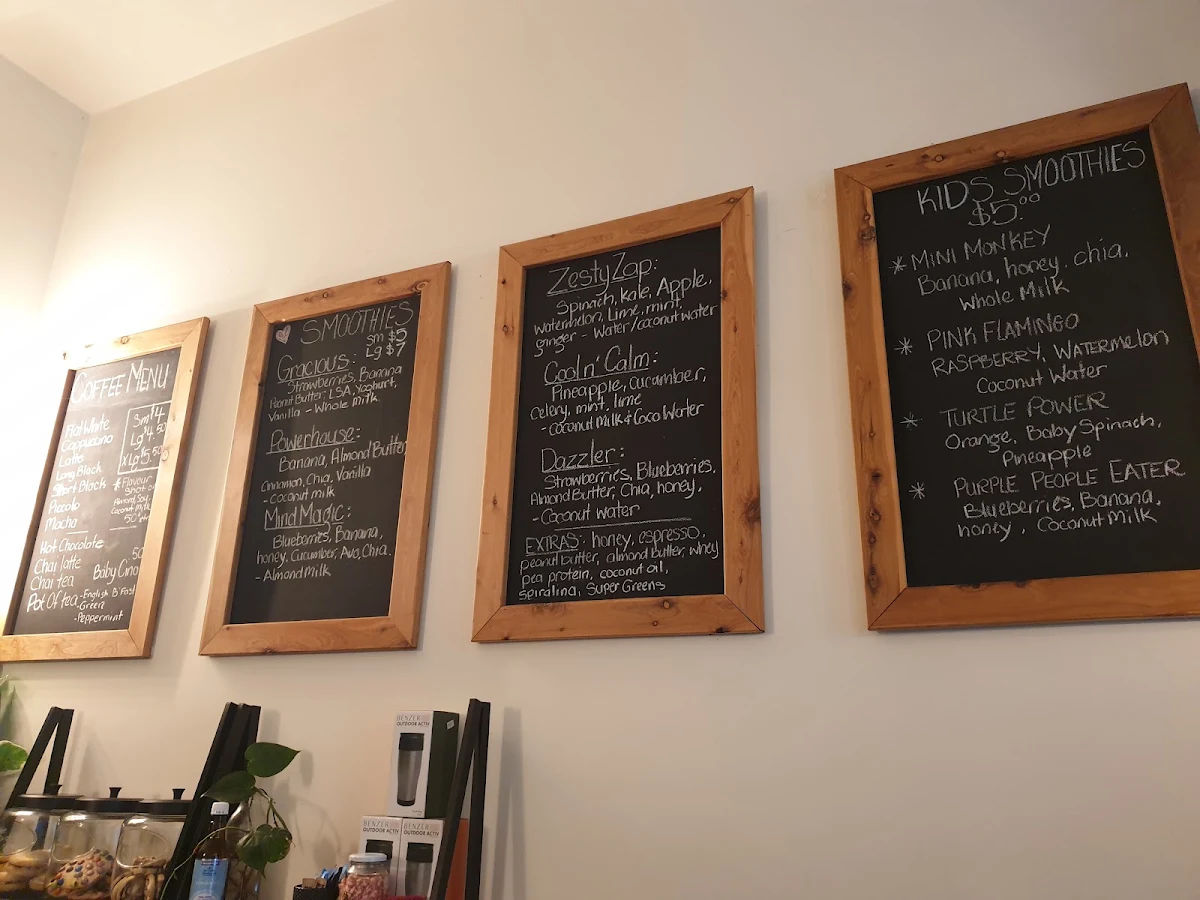 COFFEE MENU
Flat White
Cappucino
Latte
Long Black
Short Black
Piccolo
Mocha
Sm $4
Lg $4.50
XLg $5.50
*Flavour
Almond, Soy,
Coconut Milk
50¢
Hot Chocolate
Chai latte
Chai tea
Baby Cino
Pot Of tea -English B'Fast
-Green
-Peppermint
SMOOTHIES
Sm $5
Lg $7
Gracious:
Strawberries, Banana
Peanut Butter, LSA, Yoghurt,
Vanilla - Whole milk.
Powerhouse:
Banana, Almond Butter,
Cinnamon, Chia, Vanilla
- coconut milk
Mind Magic:
Blueberries, Banana,
honey, Cucumber, Avo, Chia.
- Almond Milk
Zesty Zap:
Spinach, Kale, Apple,
watermelon, Lime, mint,
ginger - Water/coconut water
Cooln' Calm:
Pineapple, Cucumber,
celery, mint, lime
- Coconut Milk & Coco Water
Dazzler:
Strawberries, Blueberries,
Almond Butter, Chia, honey,
- Coconut Water
EXTRAS: honey, espresso,
peanut butter, almond butter, whey
pea protein, coconut oil,
spiralina, Super Greens
KIDS SMOOTHIES
$5.00
* MINI MONKEY
Banana, honey. chia,
Whole Milk
* PINK FLAMINGO
RASPBERRY, WATERMELON
Coconut Water
* TURTLE POWER
Orange, Baby Spinach,
Pineapple
* PURPLE PEOPLE EATER
Blueberries, Banana,
honey, Coconut Milk
BENZER
OUTDOOR ACTIV
BENZER
OUTDOOR ACTIV
BENZER
OUTDOOR ACTIV